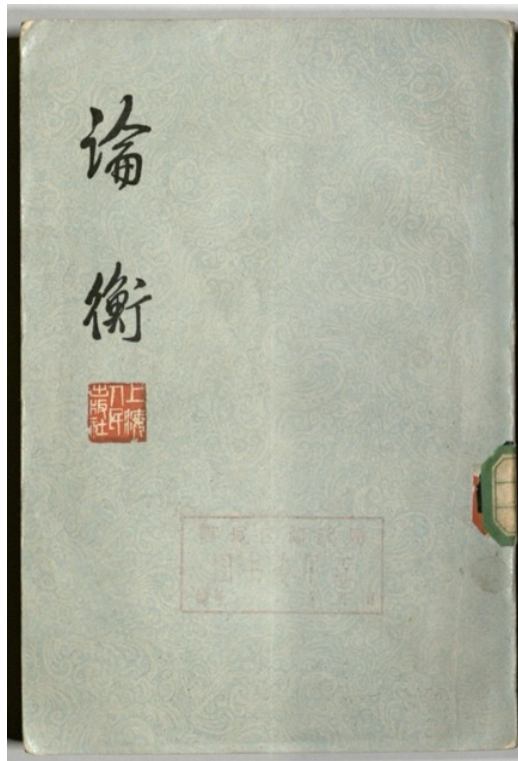 論衡
上海
人民
出版社